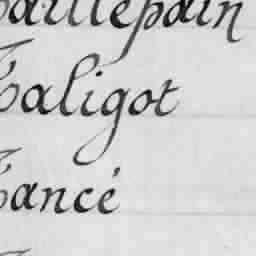 Taillepain
Taligot
Tancé